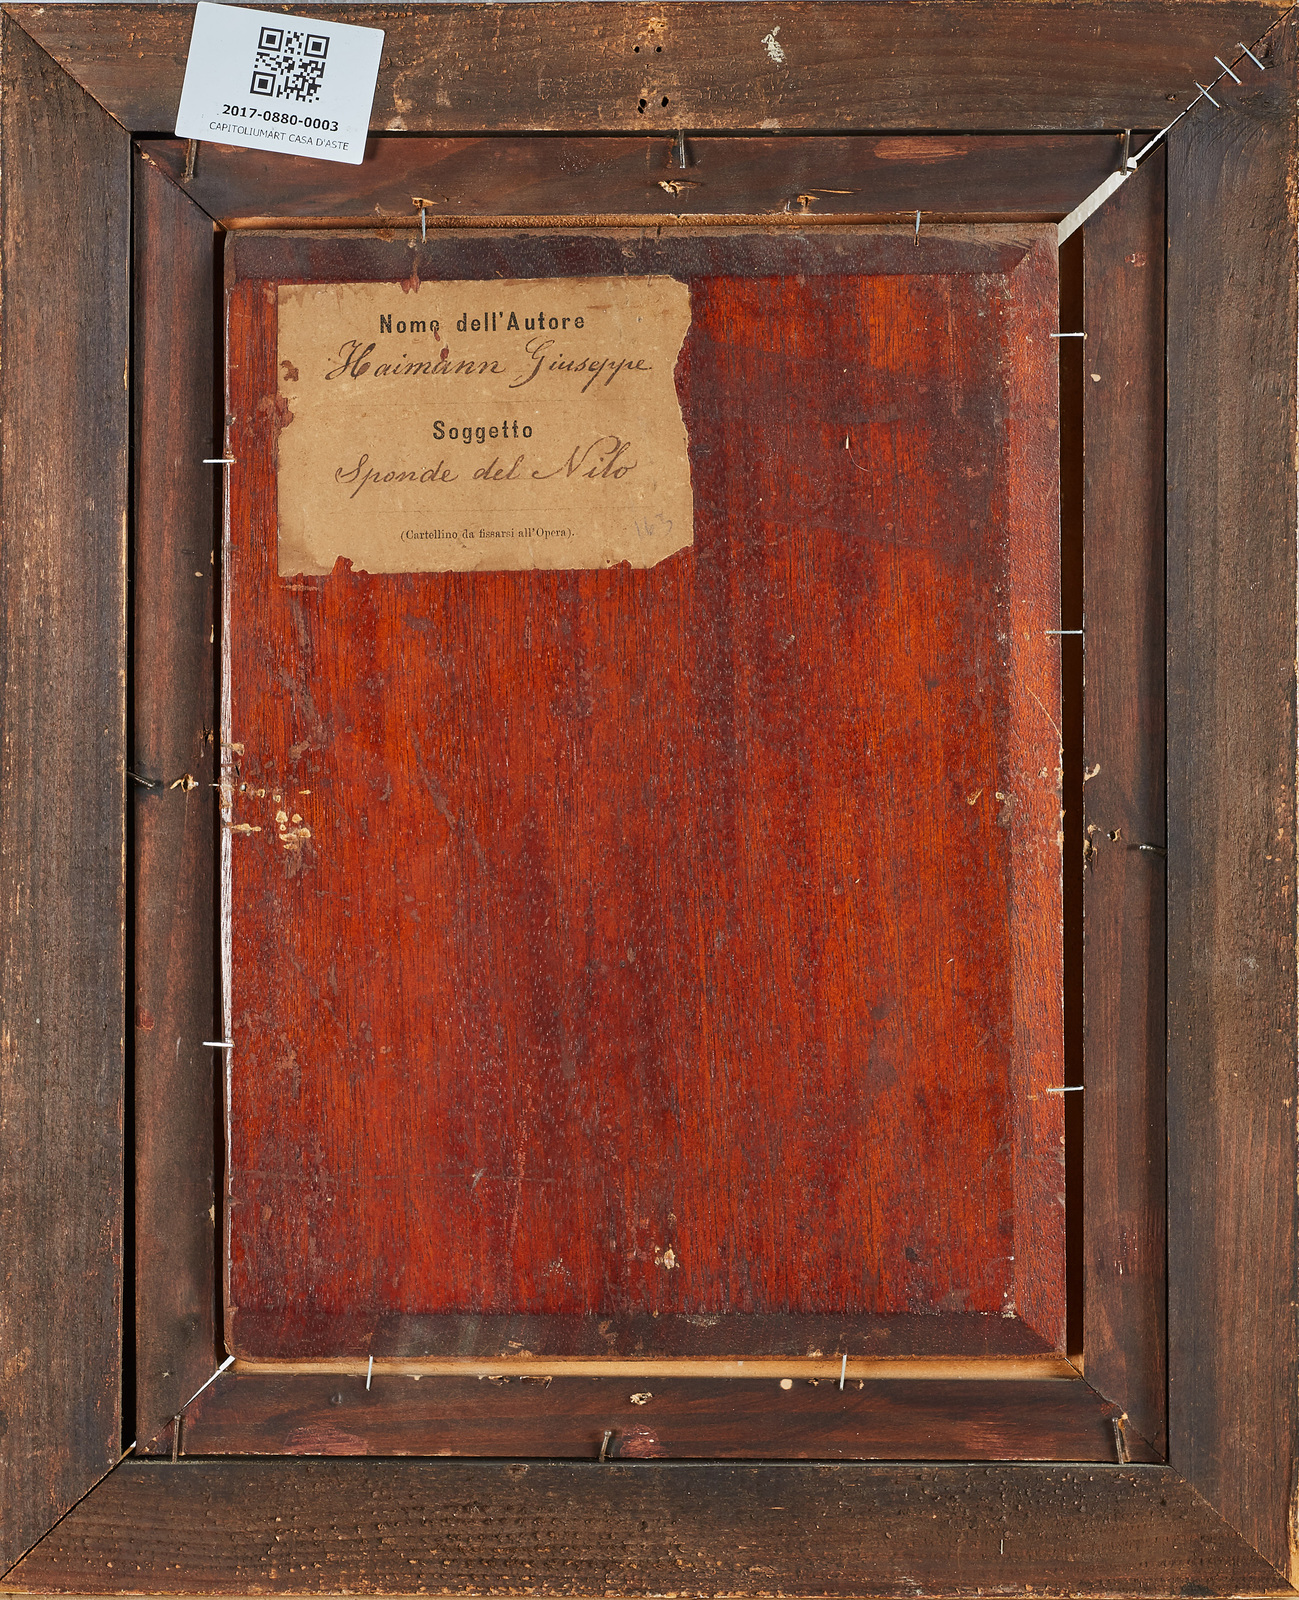 2017-0880-0003
CAPITOLIUMART CASA D'ASTE
Nome dell'Autore
Haimann Giuseppe
Soggetto
Sponde del Nilo
(Cartellino da fissarsi all'Opera).
163